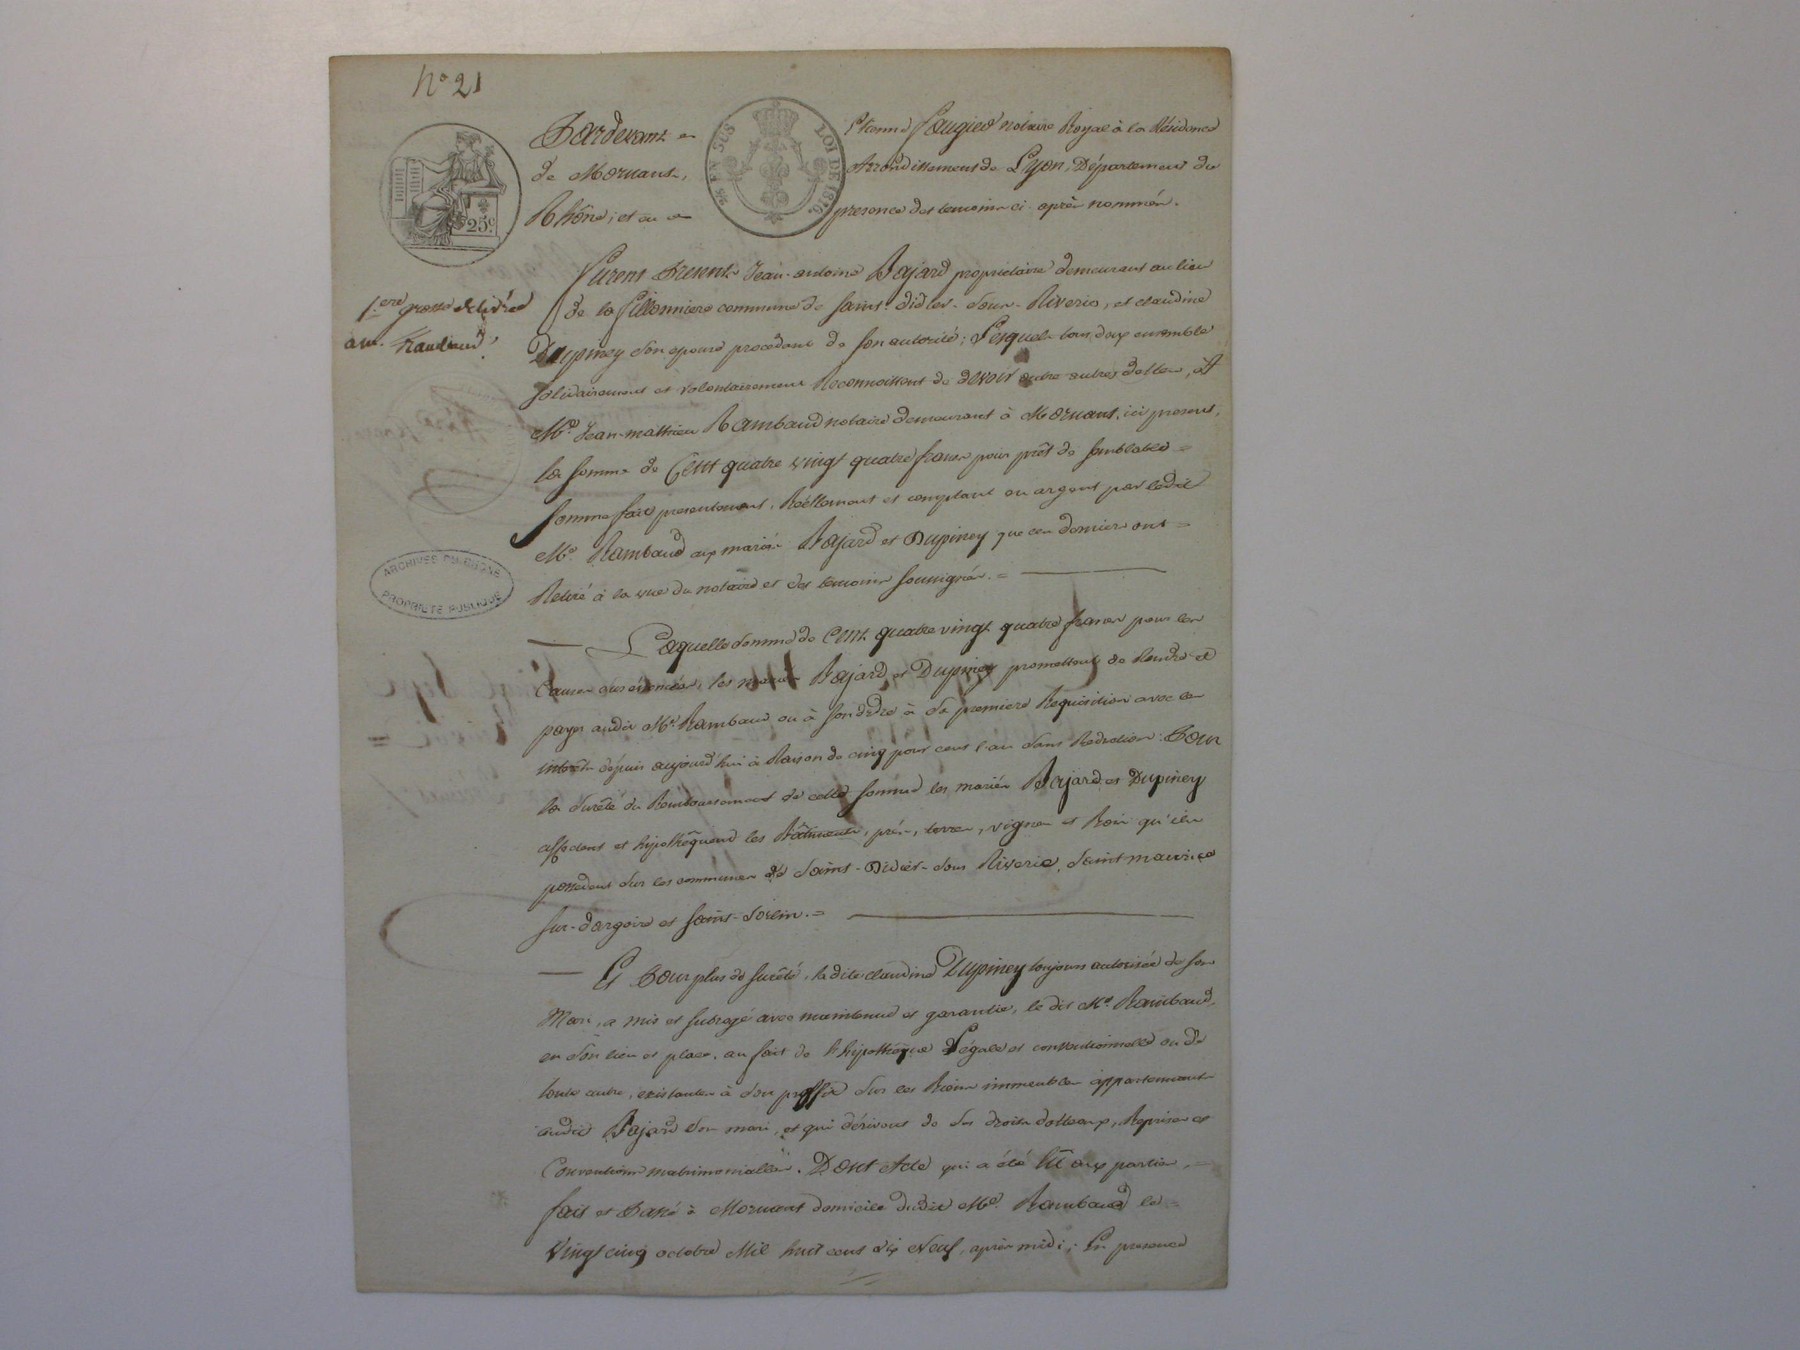 N° 21
Pardevant
Etienne Faugier notaire Royal à la Résidence
de Mornant,
Arrondissement de Lyon, Département du
Rhône, et en
presence des temoins ci-après nommés.
25c
2s EN SUS
LOI DE 1816.
Furent Presents Jean-antoine Bajard proprietaire demeurant au lieu
1.ere grosse délivrée
de la Pillonniere commune de saint-didier-sous-Riverie, et claudine
a m.e Rambaud
Dupiney son epouse procedant de son autorité; Lesquels tous deux ensemble
solidairement et volontairement Reconnoissent de devoir outre autres dettes, à
M.e Jean-mathieu Rambaud notaire demeurant à Mornant, ici present,
la somme de Cent quatre vingt quatre francs pour prêt de semblable =
somme fait presentement, Réellement et comptant en argent par ledit
M.e Rambaud aux mariés Bajard et Dupiney que ces derniers ont =
Retiré à la vue du notaire et des temoins soussignés. =
ARCHIVES DU RHONE
PROPRIÉTÉ PUBLIQUE
— Laquelle somme de Cent quatre vingt quatre francs pour les
Causes susénoncées, les mariés Bajard et Dupiney promettent de Rendre et
payer audit M.e Rambaud ou à son ordre à sa premiere Requisition avec les
interêts depuis aujourd'hui à Raison de cinq pour cent l'an sans Reduction. Pour
la sureté du Remboursement de cette somme les mariés Bajard et Dupiney
affectent et hipothêquent les Bâtiments, prés, terres, vignes et Bois qu'ils
possedent sur les communes de Saint-Didier-sous Riverie, saint maurice
sur-dargoire et saint-sorlin. =
— Et Pour plus de sureté, la dite claudine Dupiney toujours autorisée de son
Mari, a mis et subrogé avec maintenue et garantie, le dit M.e Rambaud,
en son lieu et place, au fait de l'hipothêque Légale et conventionnelle ou de
toute autre, existantes à son proffit sur les Biens immeubles appartenant
audit Bajard son mari, et qui dérivent de ses droits dotteaux, Reprises et
Conventions matrimonialles. Dont Acte qui a été lû aux parties, =
fait et Passé à Mornant domicile dudit M.e Rambaud le =
Vingt cinq octobre Mil huit cent dix Neuf, après midi; En presence